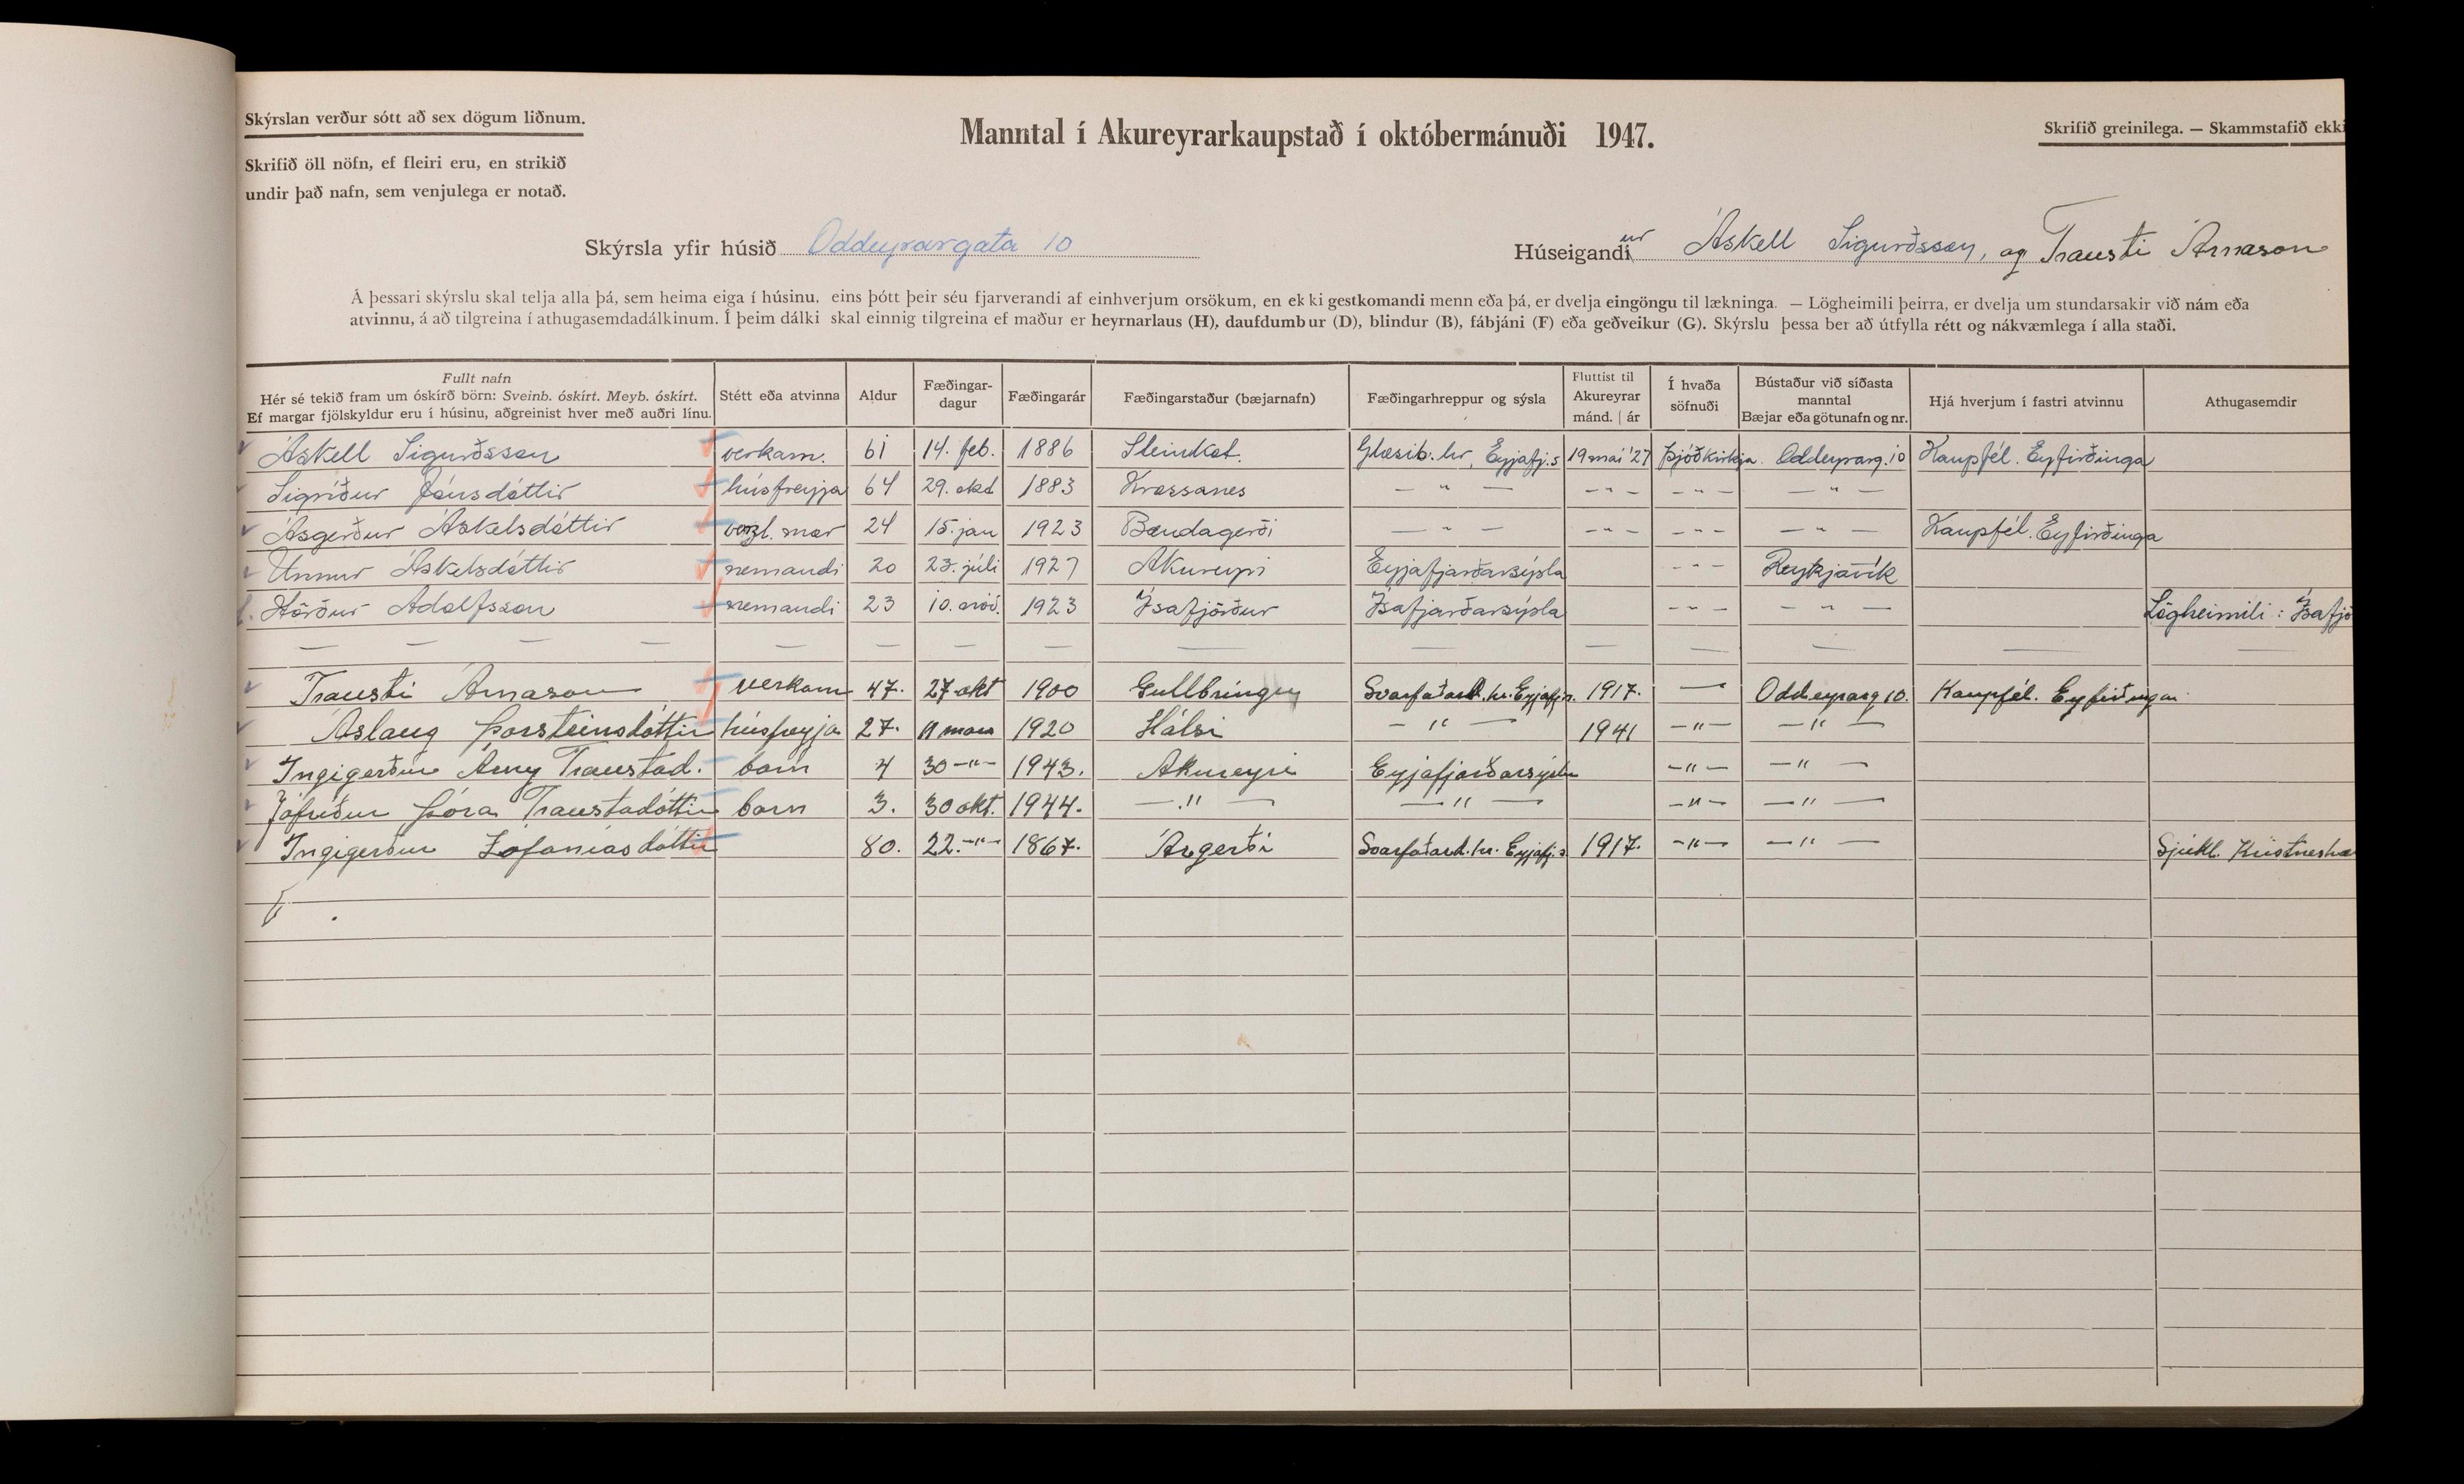 Skýrslan verður sótt að sex dögum liðnum.
Skrifið öll nöfn, ef fleiri eru, en strikið
undir það nafn, sem venjulega er notað.
Manntal í Akureyrarkaupstað í októbermánuði 1947.
Skrifið greinilega. — Skammstafið ekki
Skýrsla yfir húsið Oddeyrargata 10
Húseigandi ur Áskell Sigurðsson, og Trausti Árnason
Á þessari skýrslu skal telja alla þá, sem heima eiga í húsinu, eins þótt þeir séu fjarverandi af einhverjum orsökum, en ekki gestkomandi menn eða þá, er dvelja eingöngu til lækninga. — Lögheimili þeirra, er dvelja um stundarsakir við nám eða
atvinnu, á að tilgreina í athugasemdadálkinum. Í þeim dálki skal einnig tilgreina ef maður er heyrnarlaus (H), daufdumbur (D), blindur (B), fábjáni (F) eða geðveikur (G). Skýrslu þessa ber að útfylla rétt og nákvæmlega í alla staði.
Fullt nafn
Hér sé tekið fram um óskírð börn: Sveinb. óskírt. Meyb. óskírt.
Ef margar fjölskyldur eru í húsinu, aðgreinist hver með auðri línu.
Stétt eða atvinna
Aldur
Fæðingar-
dagur
Fæðingarár
Fæðingarstaður (bæjarnafn)
Fæðingarhreppur og sýsla
Fluttist til
Akureyrar
mánd. | ár
Í hvaða
söfnuði
Bústaður við síðasta
manntal
Bæjar eða götunafn og nr.
Hjá hverjum í fastri atvinnu
Athugasemdir
Áskell Sigurðsson verkam. 61 14. feb. 1886 Steinkot. Glæsib. hr, Eyjafj.s 19 maí '27 Þjóðkirkja. Oddeyrarg. 10 Kaupfél. Eyfirðinga
Sigríður Jónsdóttir húsfreyja 64 29. okt 1883 Krossanes — " — - " - - " - — " —
Ásgerður Áskelsdóttir verzl. mær 24 15. jan 1923 Bændagerði — " — - " - - " - — " — Kaupfél. Eyfirðinga
Unnur Áskelsdóttir nemandi 20 23. júlí 1927 Akureyri Eyjafjarðarsýsla - " - Reykjavík
Hörður Adolfsson nemandi 23 10. nóv. 1923 Ísafjörður Ísafjarðarsýsla - " - — " — Lögheimili: Ísafjö
— — — — — — — — — — — — — — —
Trausti Árnason verkam 47. 27 okt 1900 Gullbringu Svarfaðard. hr. Eyjafj.s. 1917. — Oddeyrarg 10. Kaupfél. Eyfirðinga.
Áslaug Þorsteinsdóttir húsfreyja 27. 11 mars 1920 Hálsi — " — 1941 - " - — " —
Ingigerður Árný Traustad. barn 4 30 - " - 1943. Akureyri Eyjafjarðarsýslu - " - — " —
Jófríður Þóra Traustadóttir barn 3. 30 okt. 1944. — " — — " — - " - — " —
Ingigerður Zófaníasdóttir 80. 22. - " - 1867. Árgerði Svarfaðard. hr. Eyjafj.s 1917. - " - — " — Sjúkl. Kristneshæ